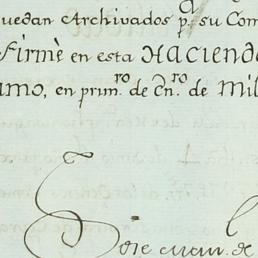 uedan Archivados pª. su Com
firmè en esta Hacienda
amo, en prim.ro de En.ro de Mil
de